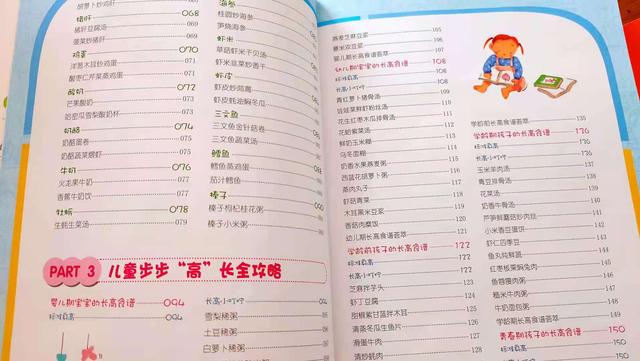 胡萝卜炒鸡肝
猪肝 068
猪肝豆腐汤 069
菠菜炒猪肝 069
鸡蛋 070
洋葱木耳炒鸡蛋 071
酸枣仁芹菜蒸鸡蛋 071
酸奶 072
芒果酸奶 073
哈密瓜雪梨酸奶杯 073
奶酪 074
奶酪蛋卷 075
奶酪蔬菜煨虾 075
牛奶 076
火龙果牛奶 077
香蕉牛奶饮 077
牡蛎 078
生蚝生菜汤 079
海参
桂圆炒海参
笋烧海参
虾米
草菇虾米干贝汤
虾米韭菜炒香干
虾皮
虾皮炒茼蒿
虾皮蚝油焖冬瓜
三文鱼
三文鱼金针菇卷
三文鱼蔬菜汤
鳕鱼
鳕鱼蒸鸡蛋
茄汁鳕鱼
榛子
榛子枸杞桂花粥
榛子小米粥
PART 3 儿童步步“高”长全攻略
婴儿期宝宝的长高食谱 094
标准身高 094
长高小叮咛 094
雪梨稀粥
土豆稀粥
白萝卜稀粥
燕麦芝麻豆浆 105
薏米双豆浆 106
婴儿期长高食谱荟萃 107
幼儿期宝宝的长高食谱
标准身高
长高小叮咛
青红萝卜猪骨汤
娃娃菜鲜虾粉丝汤
花生红枣木瓜排骨汤
花蛤蜊汤
鲜奶玉米糊
乌冬面糊
奶香水果燕麦粥
西蓝花胡萝卜粥
蒸肉丸子
虾菇青菜
木耳黑米豆浆
香菇肉糜饭 120
幼儿期长高食谱荟萃 121
学龄前孩子的长高食谱 122
标准身高 122
长高小叮咛
芝麻拌芋头
虾丁豆腐
甜椒紫甘蓝拌木耳
清蒸冬瓜生鱼片
滑蛋牛肉
清炒蚝肉
学龄前长高食谱荟萃 135
学龄期孩子的长高食谱 136
标准身高 136
长高小叮咛
玉米羊肉汤
青豆排骨汤
花菜汤
奶香牛骨汤
芦笋鲜蘑菇炒肉丝
小米香豆蛋饼
虾仁四季豆
鱼丸炖鲜蔬
红枣板栗焖兔肉
鱼唇瘦肉粥
糙米牛肉粥
牛奶面包粥
学龄期长高食谱荟萃
青春期孩子的长高食谱 150
标准身高 150